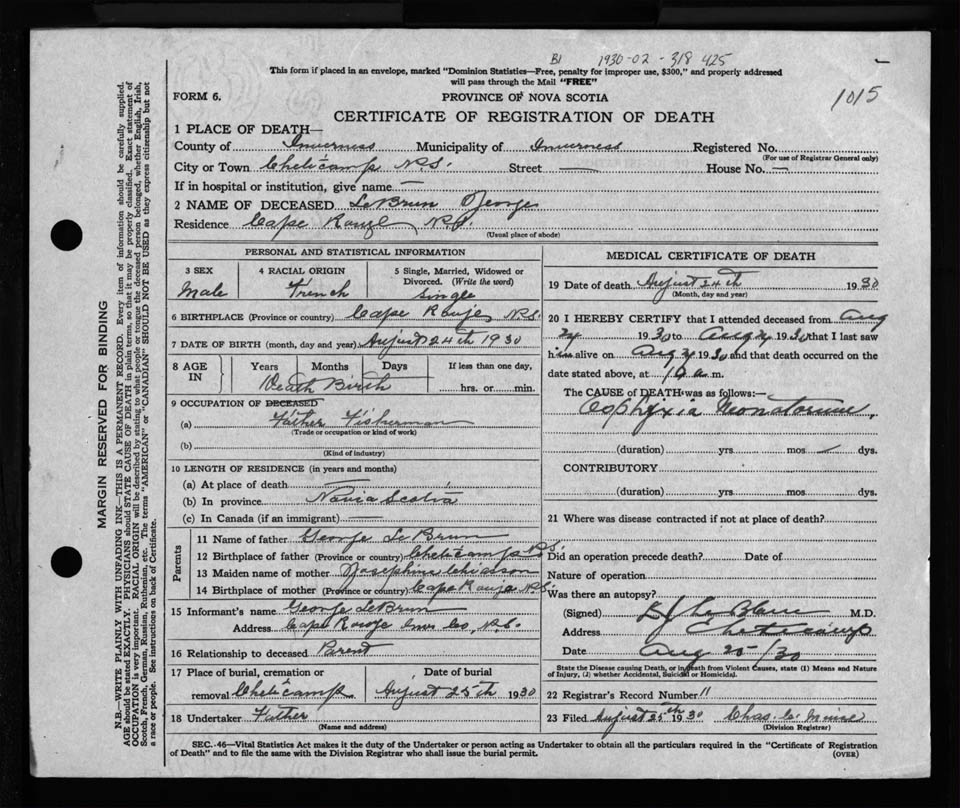 B1 1930-02-318 425
1015
This form if placed in an envelope, marked "Dominion Statistics—Free, penalty for improper use, $300," and properly addressed
will pass through the Mail "FREE"
FORM 6.
PROVINCE OF NOVA SCOTIA
CERTIFICATE OF REGISTRATION OF DEATH
1 PLACE OF DEATH—
County of Inverness Municipality of Inverness Registered No.
(For use of Registrar General only)
City or Town Cheticamp N.S. Street — House No. —
If in hospital or institution, give name —
2 NAME OF DECEASED LeBrun George
Residence Cape Rouge N.S.
(Usual place of abode)
PERSONAL AND STATISTICAL INFORMATION
3 SEX 4 RACIAL ORIGIN 5 Single, Married, Widowed or
Divorced. (Write the word)
Male French Single
6 BIRTHPLACE (Province or country) Cape Rouje N.S.
7 DATE OF BIRTH (month, day and year) August 24th 1930
8 AGE IN Years Months Days If less than one day,
Death Birth hrs. or min.
9 OCCUPATION OF DECEASED
(a) Father Fisherman
(Trade or occupation or kind of work)
(b)
(Kind of industry)
10 LENGTH OF RESIDENCE (in years and months)
(a) At place of death —
(b) In province Novia Scotia
(c) In Canada (if an immigrant) —
Parents
11 Name of father George LeBrun
12 Birthplace of father (Province or country) Cheticamp N.S.
13 Maiden name of mother Josephine Chiasson
14 Birthplace of mother (Province or country) Cape Rouje N.S.
15 Informant's name George LeBrun
Address Cape Rouje Inv Co, N.S.
16 Relationship to deceased Parent
17 Place of burial, cremation or Date of burial
removal Cheticamp August 25th 1930
18 Undertaker Father
(Name and address)
MEDICAL CERTIFICATE OF DEATH
19 Date of death August 24th 1930
(Month, day and year)
20 I HEREBY CERTIFY that I attended deceased from Aug
24 1930 to Aug 24 1930 that I last saw
him alive on Aug 24 1930 and that death occurred on the
date stated above, at 10 a m.
The CAUSE OF DEATH was as follows:—
Asphyxia Neonatorum
(duration) yrs. mos. dys.
CONTRIBUTORY
(duration) yrs. mos. dys.
21 Where was disease contracted if not at place of death?
Did an operation precede death? Date of
Nature of operation
Was there an autopsy?
(Signed) LeBlanc M.D.
Address Cheticamp
Date Aug 25/30
State the Disease causing Death, or in death from Violent Causes, state (1) Means and Nature
of Injury, (2) whether Accidental, Suicidal or Homicidal.
22 Registrar's Record Number 11
23 Filed August 25th 1930 Chas
(Division Registrar)
SEC. 46—Vital Statistics Act makes it the duty of the Undertaker or person acting as Undertaker to obtain all the particulars required in the "Certificate of Registration
of Death" and to file the same with the Division Registrar who shall issue the burial permit.
(OVER)
MARGIN RESERVED FOR BINDING
N.B.—WRITE PLAINLY WITH UNFADING INK—THIS IS A PERMANENT RECORD. Every item of information should be carefully supplied.
AGE should be stated EXACTLY. PHYSICIANS should STATE CAUSE OF DEATH in plain terms, so that it may be properly classified. Exact statement of
OCCUPATION is very important. RACIAL ORIGIN will be described by stating to what people or tongue the deceased person belonged, whether English, Irish,
Scotch, French, German, Russian, Ruthenian, etc. The terms "AMERICAN" or "CANADIAN" SHOULD NOT BE USED as they express citizenship but not
a race or people. See instructions on back of Certificate.